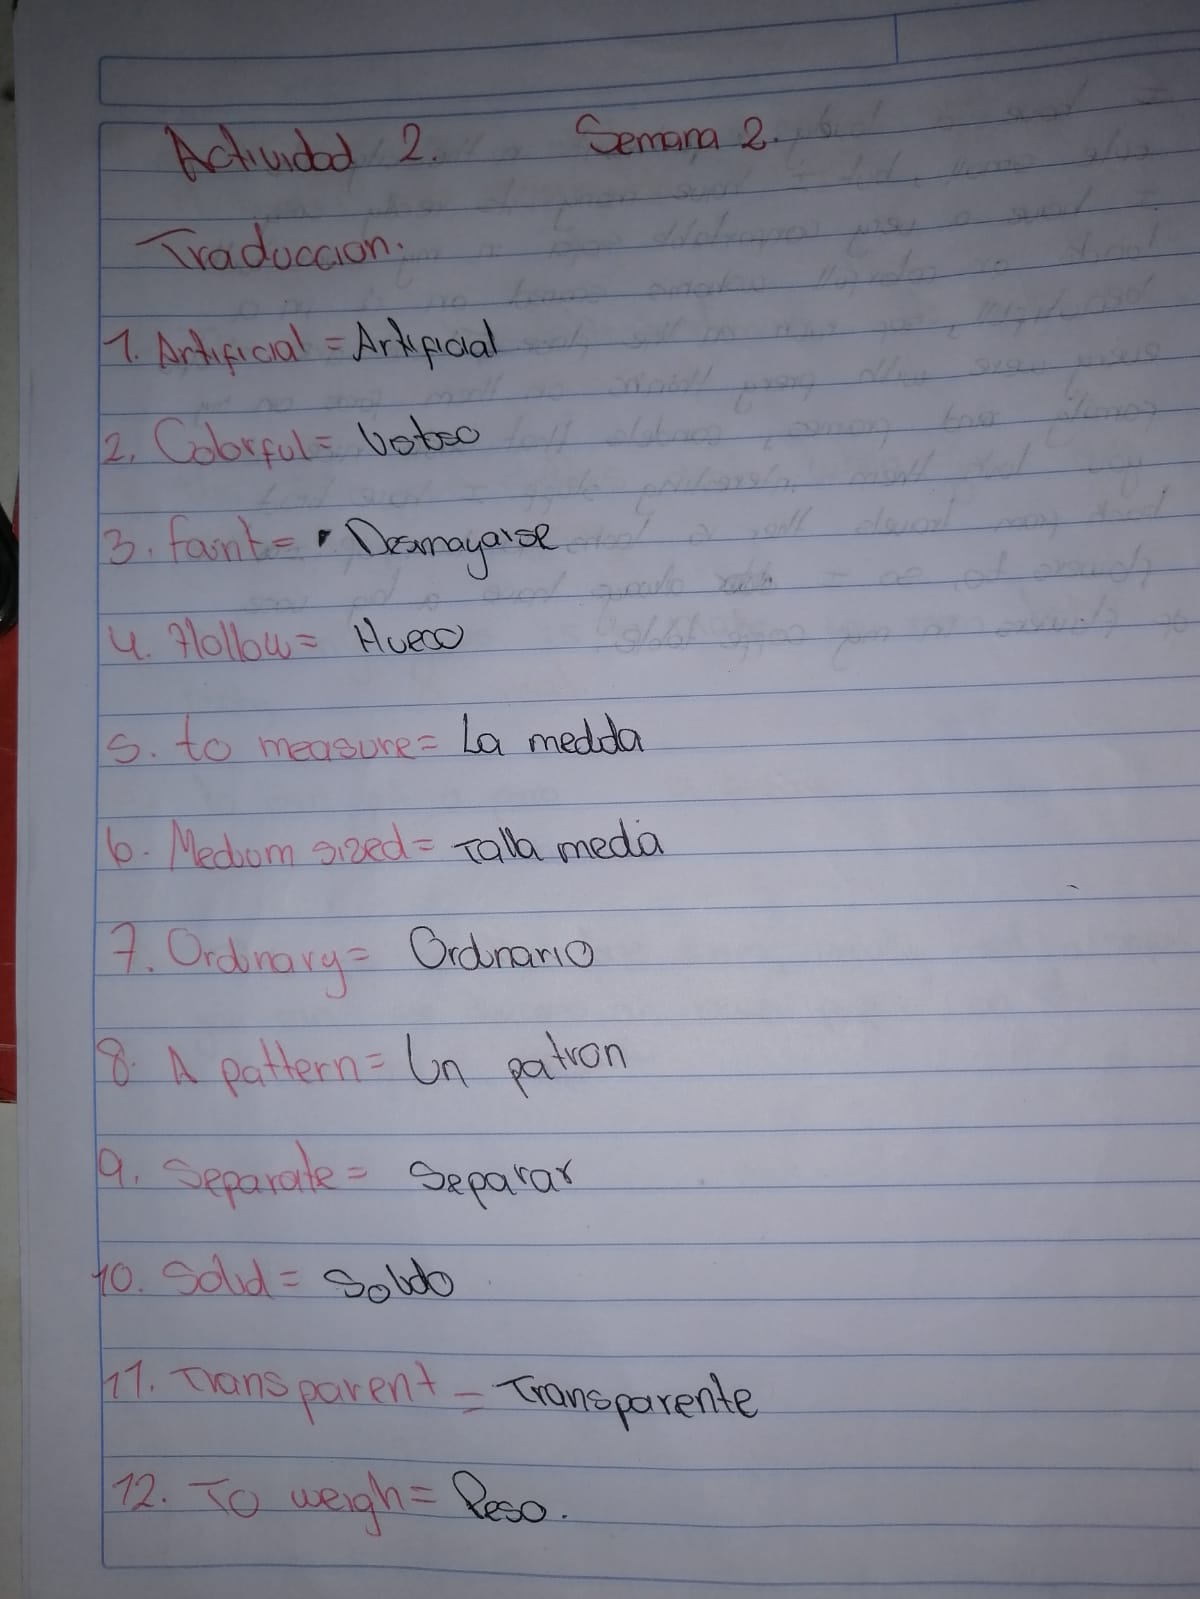 Actividad 2. Semana 2.
Traduccion.
1. Artificial = Artificial
2. Colorful =
3. Faint = Desmayarse
4. Hollow = Hueco
5. to measure = La medida
6. Medium sized = Talla media
7. Ordinary = Ordinario
8. A pattern = Un patron
9. Separate = Separar
10. Solid = Solido
11. Transparent = Transparente
12. To weigh = Peso.